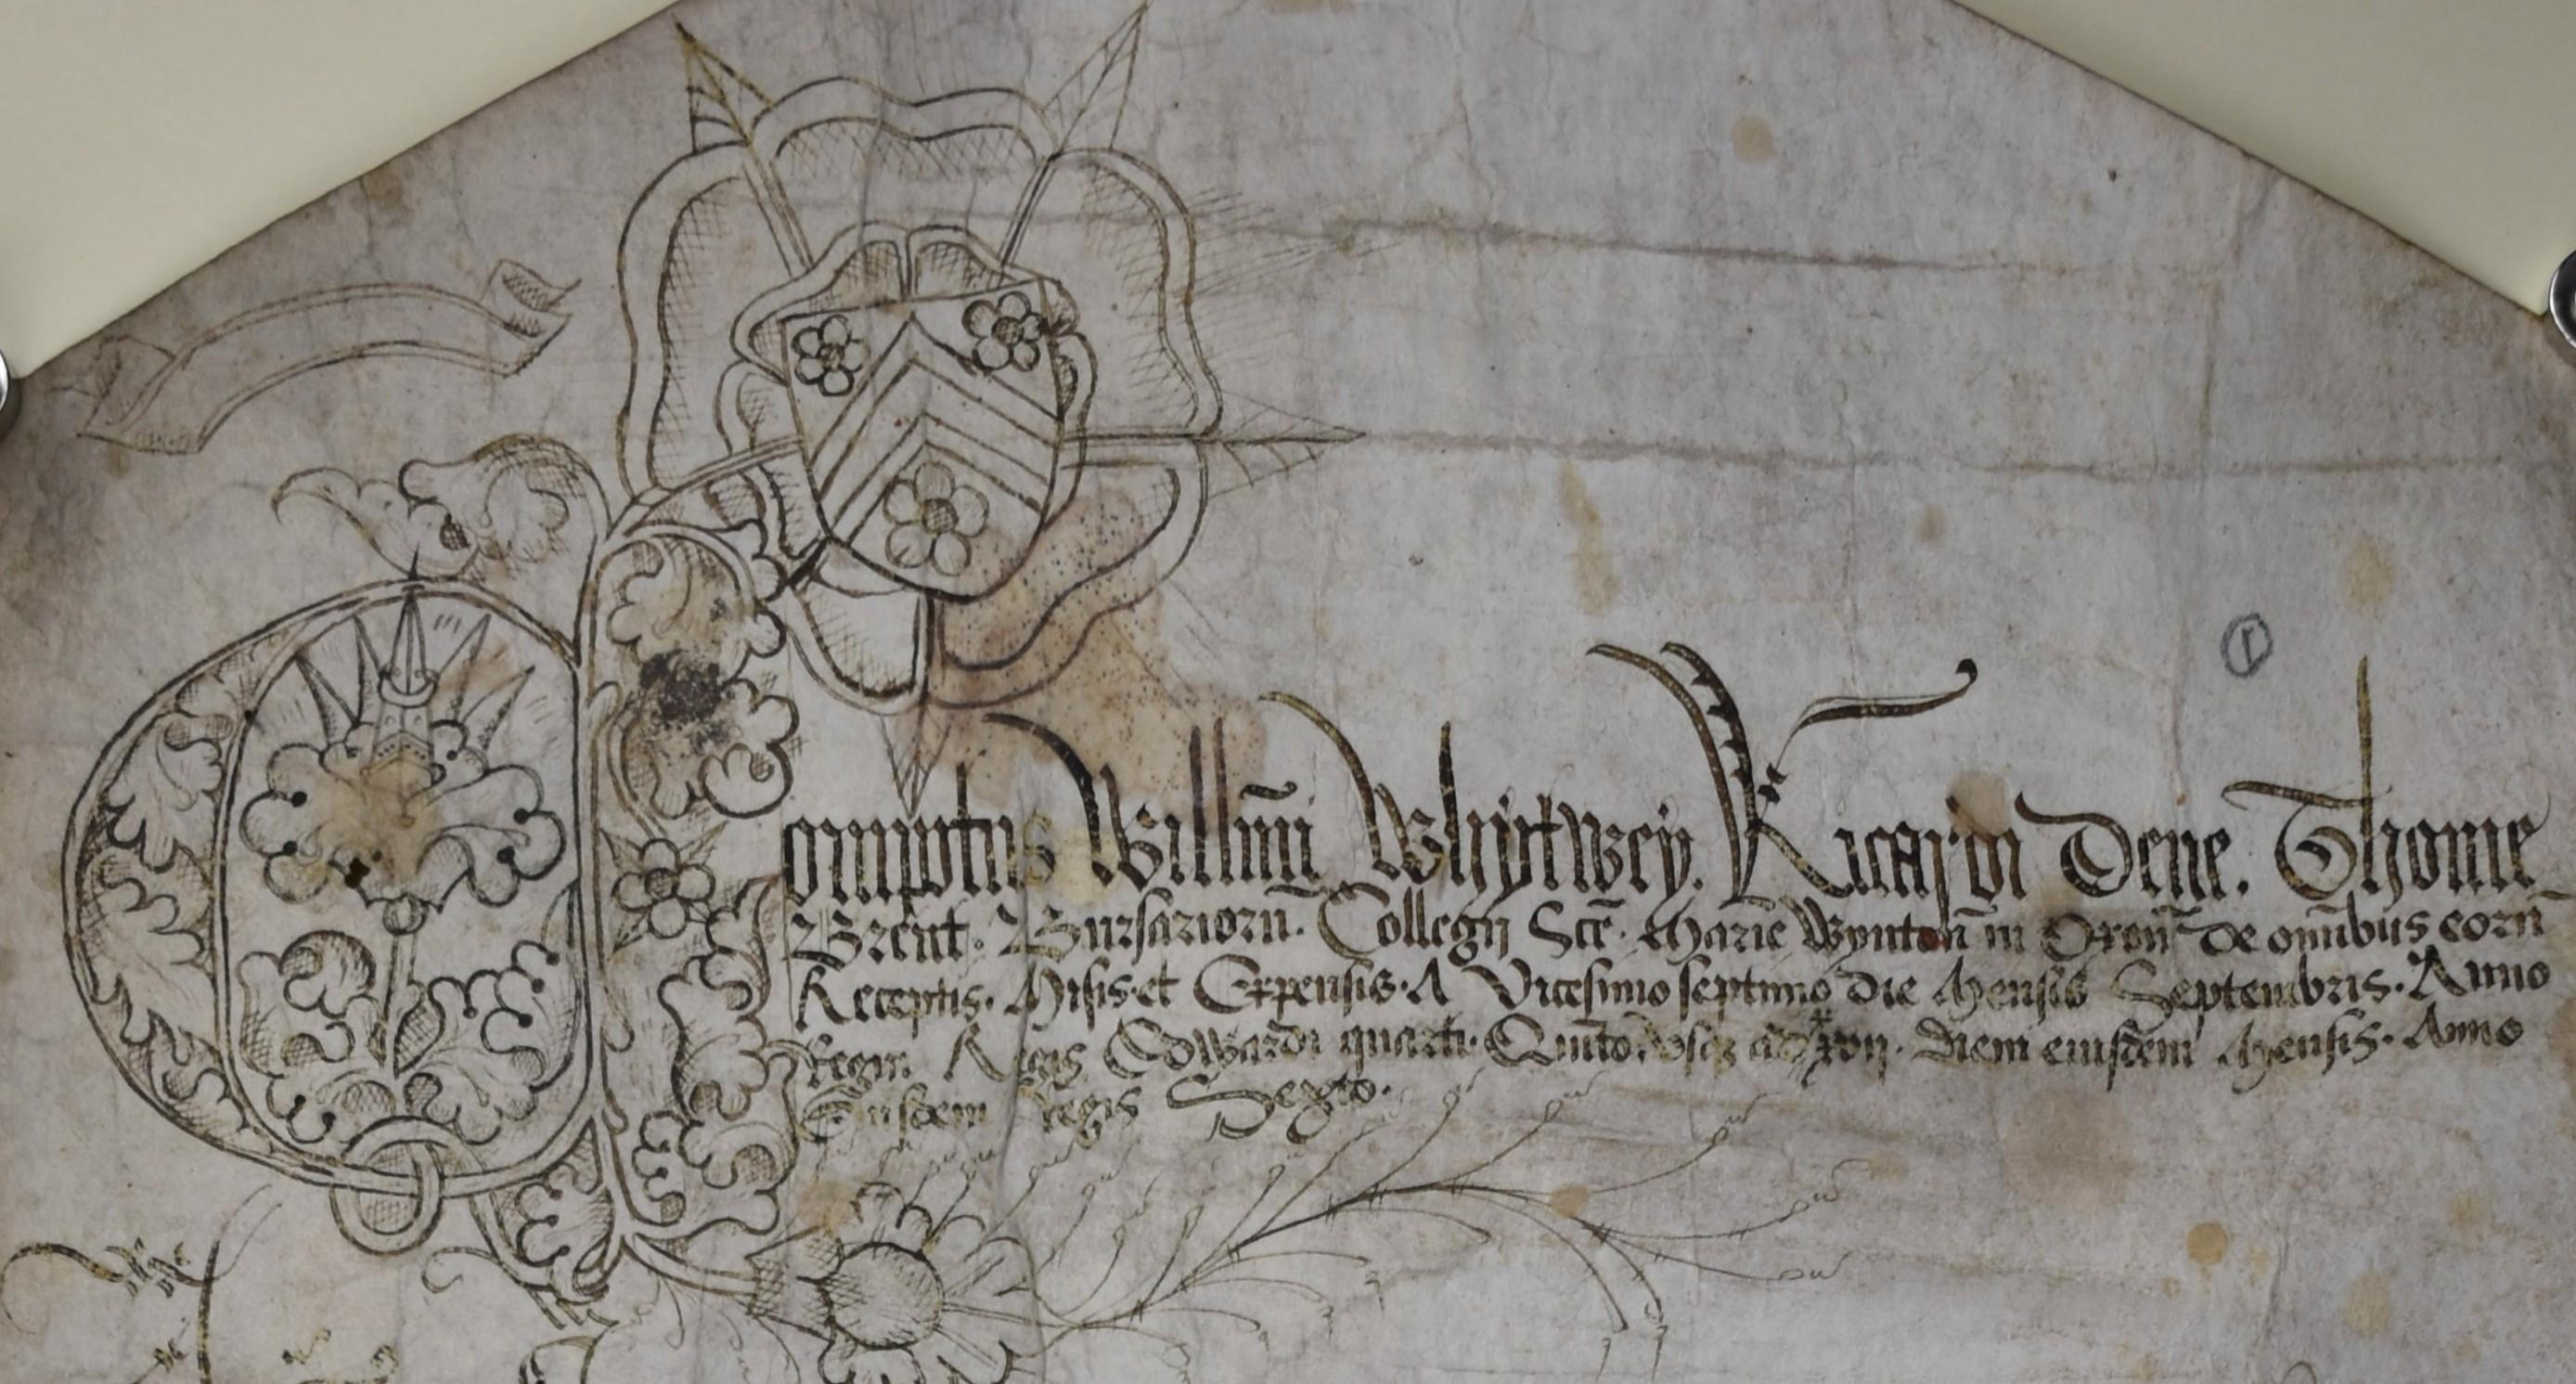 ①
Computus Willm̄i Whytwey. Ricardi Dene. Thome
Brent. Bursariorū. Collegij Sc̄e. Marie Wyntoñ in Oxoñ de om̄ibus eorū
Receptis. Misis. et Expensis. A Vicesimo septimo die Mensis Septembris. Anno
Regni Regis Edwardi quarti. Quinto. Usq; ad xxvij. diem eiusdem Mensis. Anno
Eiusdem Regis Sexto.